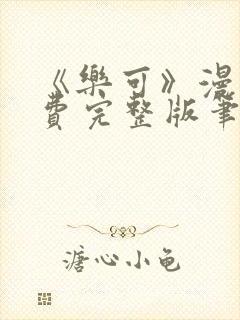 《樂可》漫
費完整版筆
溏心小龟